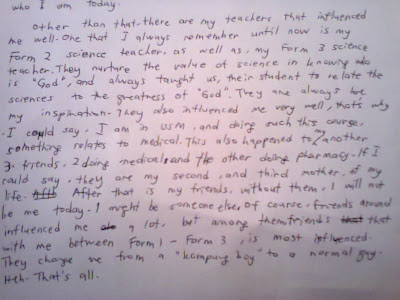 who I am today.
Other than that, there are my teachers that influenced
me well. One that I always remember until now is my
Form 2 science teacher, as well as, my Form 3 science
teacher. They nurture the value of science in knowing who
is "God", and always taught us, their student to relate the
sciences to the greatness of "God". They are always be
my inspiration. They also influenced me very well, that's why
I could say, I am in USM, and doing such this course,
something relates to medical. This also happened to my another
3 friends, 2 doing medical and the other doing pharmacy. If I
could say, they are my second, and third mother, of my
life. After that is my friends, without them, I will not
be me today. I might be someone else, of course. friends around
influenced me a lot, but among them friends that
with me between Form 1 - Form 3, is most influenced.
They change me from a "kampung boy" to a normal guy.
Heh. That's all.